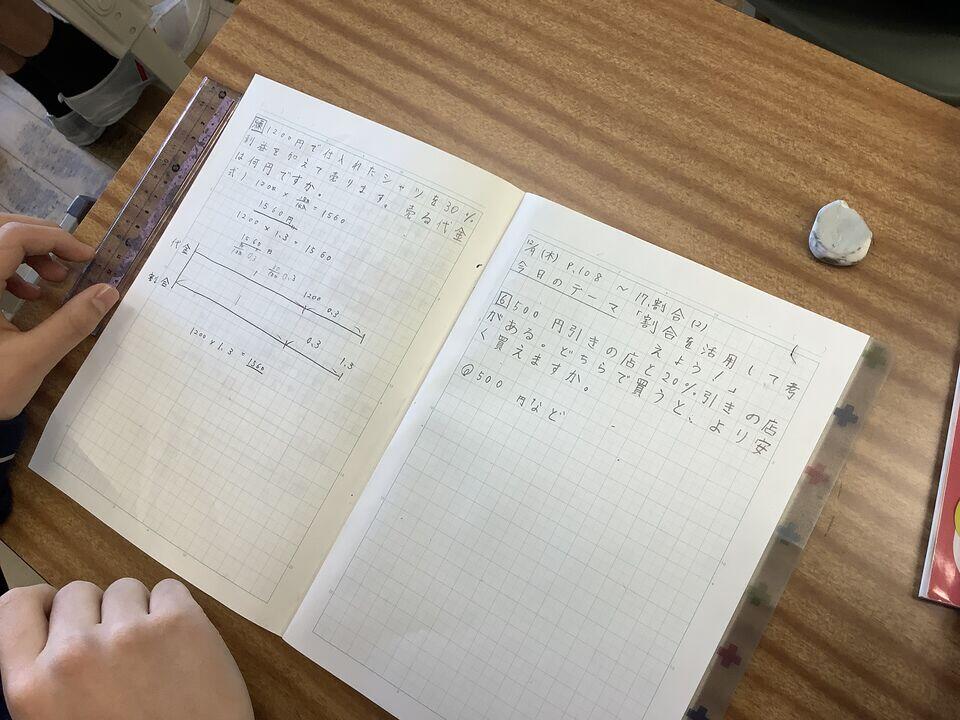 練 1200円で仕入れたシャツを30%
利益を加えて売ります。売る代金
は何円ですか。
式)
1200×130/100=1560
1560円
1200×1.3=1560
1560
0.3
代金
1200
0.3
割合
1
0.3
1.3
1200×1.3=1560
(木) P.108 ~ 17.割合(2)
今日のテーマ「割合を活用して考
えよう!」
6 500円引きの店と20%引きの店
がある。どちらで買うと、より安
く買えますか。
500
円など